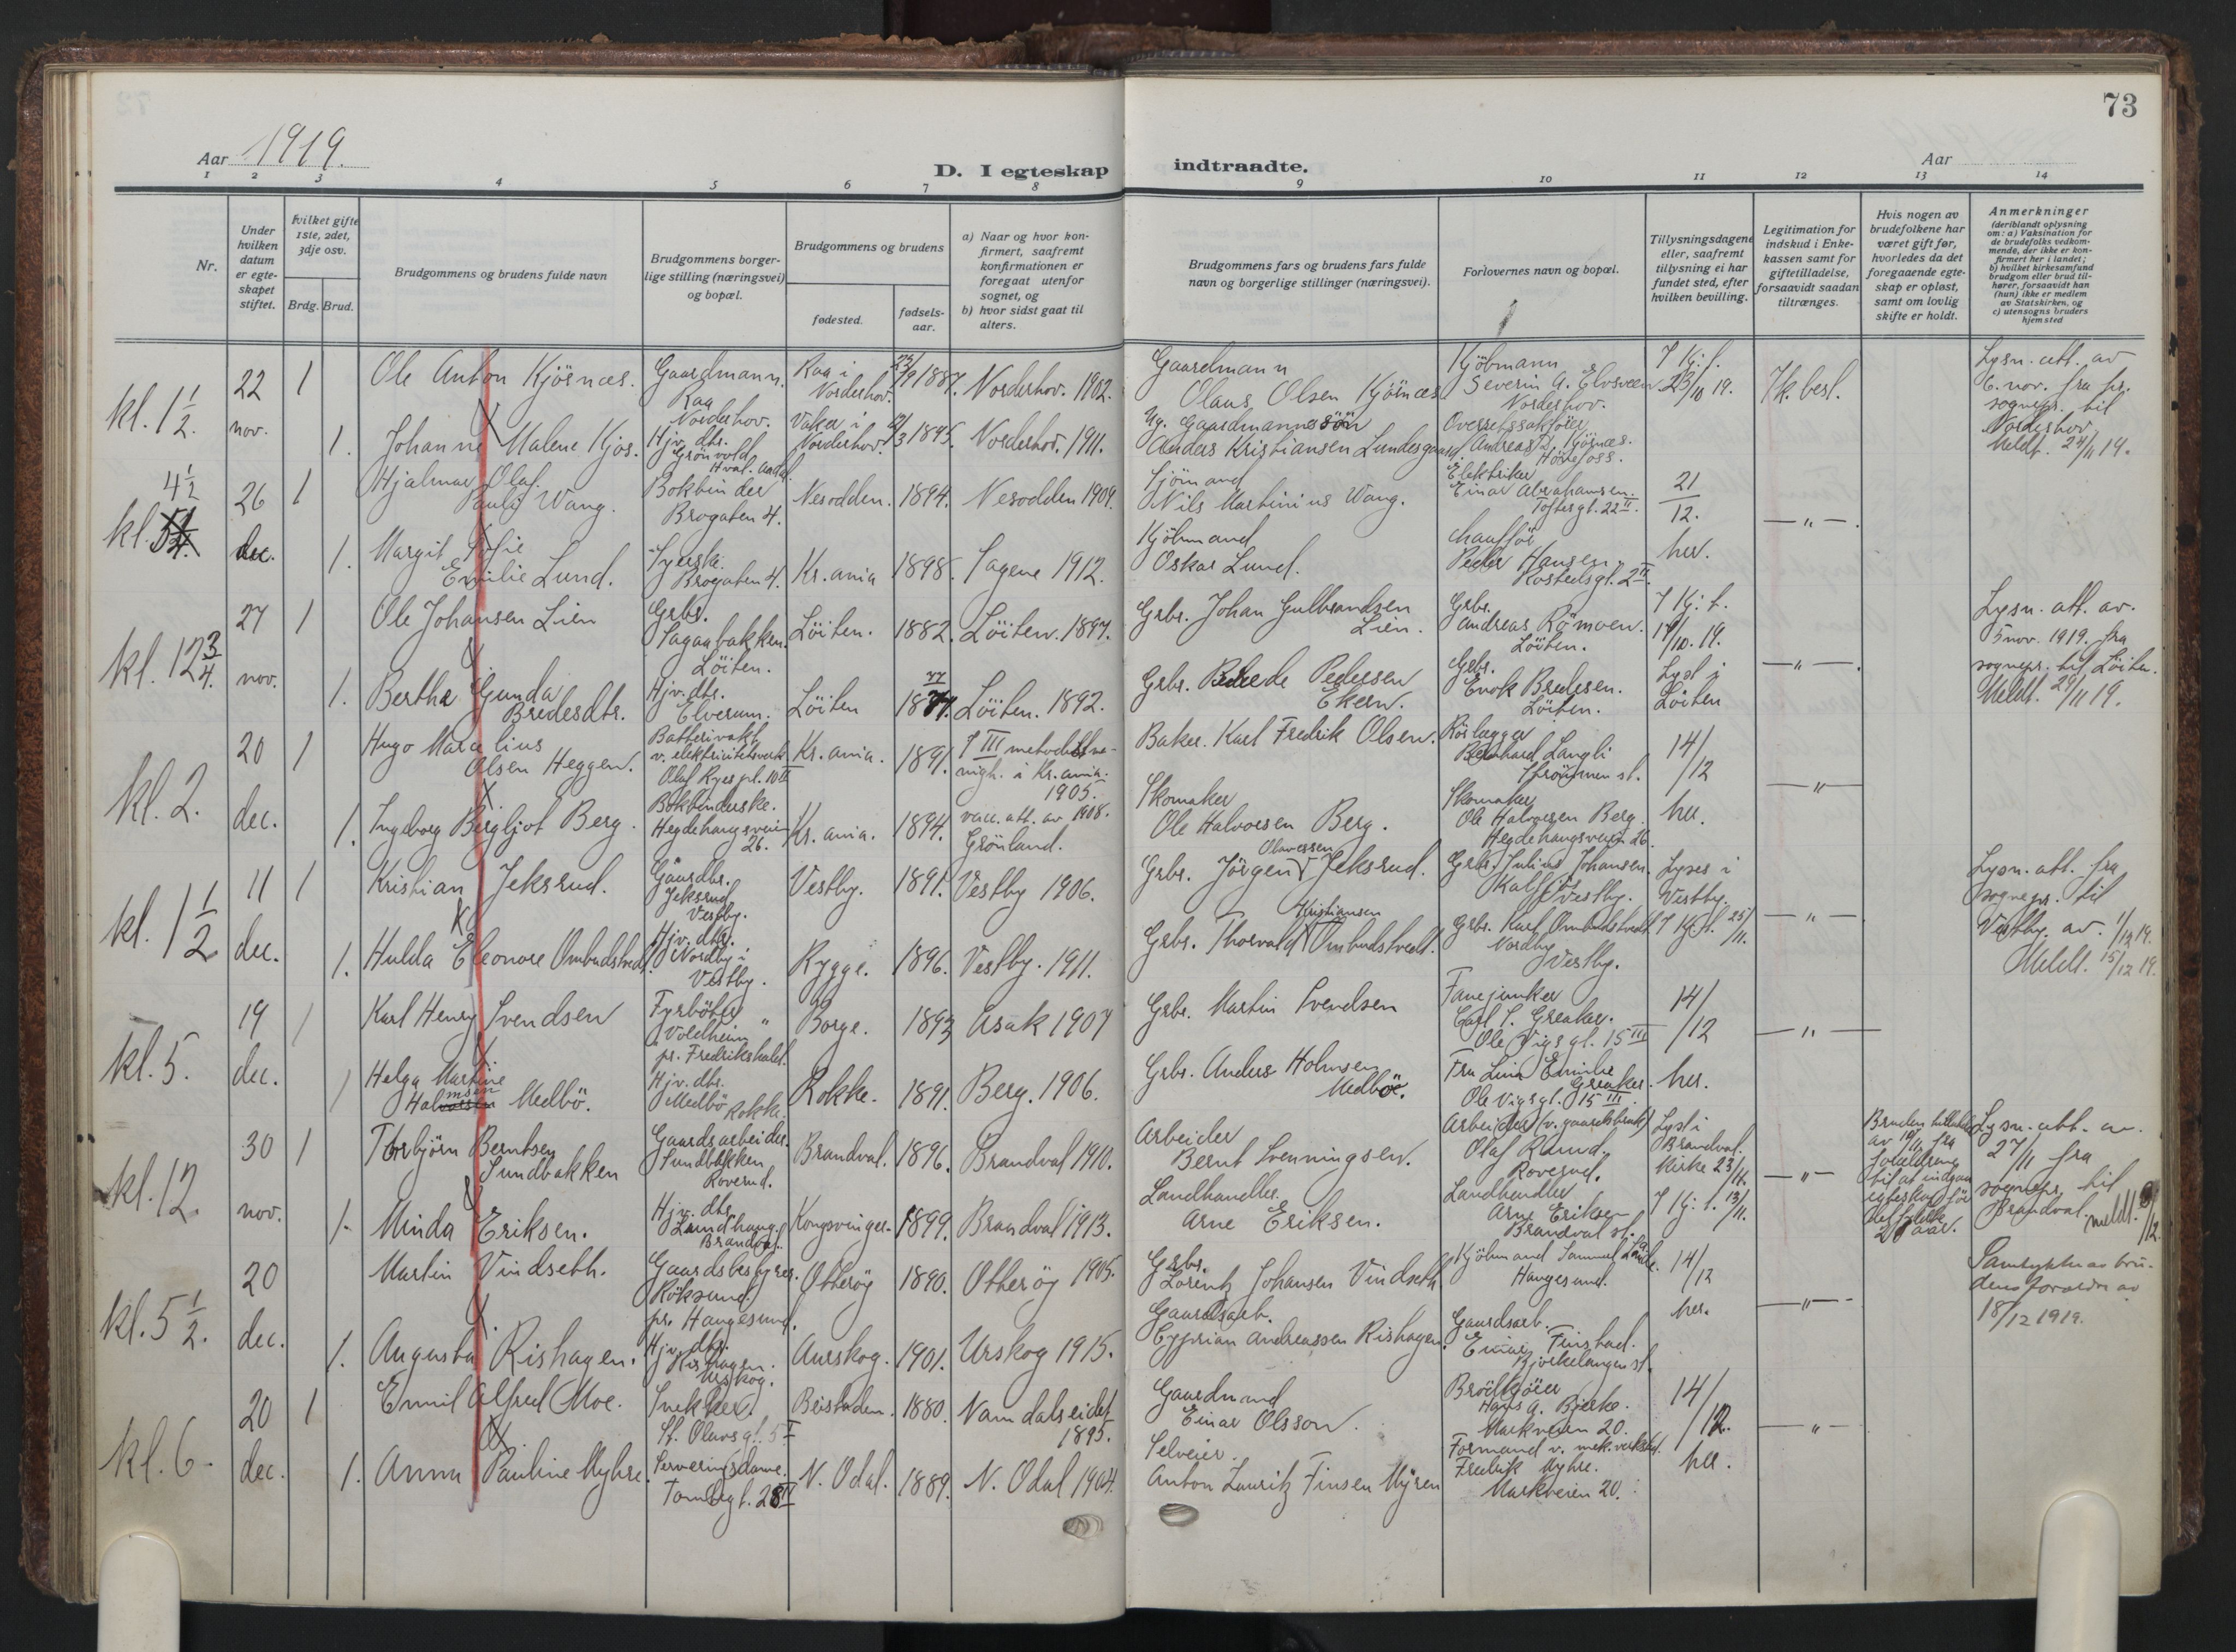 73
Aar 1919.
D. I egteskap indtraadte.
Aar
1 2 3 4 5 6 7 8 9 10 11 12 13 14
Nr.
Under hvilken datum er egteskapet stiftet.
Hvilket gifte 1ste, 2det, 3dje osv.
Brdg. Brud.
Brudgommens og brudens fulde navn
Brudgommens borgerlige stilling (næringsvei) og bopæl.
Brudgommens og brudens
fødested.
fødselsaar.
a) Naar og hvor konfirmert, saafremt konfirmationen er foregaat utenfor sognet, og
b) hvor sidst gaat til alters.
Brudgommens fars og brudens fars fulde navn og borgerlige stillinger (næringsvei).
Forlovernes navn og bopæl.
Tillysningsdagene eller, saafremt tillysning ei har fundet sted, efter hvilken bevilling.
Legitimation for indskud i Enkekassen samt for giftetilladelse, forsaavidt saadan tiltrænges.
Hvis nogen av brudefolkene har været gift før, hvorledes da det foregaaende egteskap er opløst, samt om lovlig skifte er holdt.
Anmerkninger (deriblandt oplysning om: a) Vaksination for de brudefolks vedkommende, der ikke er konfirmert her i landet; b) hvilket kirkesamfund brudgom eller brud tilhører, forsaavidt han (hun) ikke er medlem av Statskirken, og c) utensogns bruders hjemsted
kl. 1 1/2.
22 nov.
1
Ole Anton Kjörnæs.
Gaardmann. Raa Norderhov.
Raa i Norderhov.
23/9 1887.
Norderhov. 1902.
Gaardmann
Olaus Olsen Kjörnæs
Kjöbmann
Severin A. Elvsveen
Norderhov.
7 Kj. t.
23/10 19.
Lysn. att. av
6. nov. fra
sognepr. til
Norderhov
Meldt. 24/11 19.
1.
Johanne Malene Kjos.
Hjv. dtr.
Grönvold
Vaker i Norderhov.
1895.
Norderhov. 1911.
Ug. Gaardmannssön
Anders Kristiansen Lundesgaard
Overretssakförer
Andreas Kjörnæs.
Hönefoss.
4 1/2
kl.
26 dec.
1
Hjalmar Olaf
Pauly Wang.
Bokbinder
Brogaten 4.
Nesodden.
1894.
Nesodden 1909.
Sjömand
Nils Martinius Wang.
Elektriker
Einar Abrahamsen.
Toftesgt. 22 II.
21/12.
her.
— " —
1.
Margit Sofie
Emilie Lund.
Syerske.
Brogaten 4.
Kr.ania
1898.
Sagene 1912.
Kjöbmand
Oskar Lund.
Chaufför
Peder Hansen,
Rostedsgt. 2 II.
kl. 12 3/4.
27 nov.
1
Ole Johansen Lien
Grbr.
Sagaabakken.
Löiten.
Löiten.
1882.
Löiten. 1897.
Grbr. Johan Gulbrandsen
Lien.
Grbr.
Andreas Römoen.
Löiten.
7 Kj. t.
19/10. 19.
Lyst i
Löiten
— " —
Lysn. att. av.
5 nov. 1919. fra
sognepr. til Löiten.
Meldt. 29/11 19.
1.
Bertha Gunda
Bredesdtr.
Hjv. dtr.
Elverum.
Löiten
77
Löiten. 1892.
Grbr. Brede Pedersen
Ekern.
Grbr.
Enok Bredesen.
Löiten.
kl. 2.
20 dec.
1
Hugo Marcelius
Olsen Heggen.
Batterivakt
v. elektricitetsverk
Olaf Ryes pl. 10 II
Kr.ania.
1891.
7 III metodistmenigh. i Kr.ania.
1905.
vacc. att. av 1908.
Baker. Karl Fredrik Olsen.
Rörlægger
Bernhard Langli
Strömmen st.
14/12
her.
— " —
1.
Ingeborg Bergljot Berg.
Bokbinderske.
Hegdehaugsveien 26.
Kr.ania.
1894.
Grönland.
Skomaker
Ole Halvorsen Berg.
Skomaker
Ole Halvorsen Berg.
Hegdehaugsveien 26.
kl. 1 1/2
11 dec.
1
Kristian Jeksrud.
Gaardbr.
Jeksrud
Vestby.
Vestby.
1891.
Vestby 1906.
Olavessen
Grbr. Jörgen Jeksrud.
Grbr. Julius Johansen.
Vestby.
Lyses i
Vestby.
7 Kj. t. 25/11.
— " —
Lysn. att. fra
sognepr. til
Vestby. av. 1/12 19.
Meldt. 15/12 19.
1.
Hulda Eleonore Ombudstvedt
Hjv. dtr.
Nordby i
Vestby.
Rygge.
1896.
Vestby. 1911.
Kristiansen
Grbr. Thorvald Ombudstvedt.
Grbr. Karl Ombudstvedt
Nordby
Vestby.
kl. 5.
19 dec.
1
Karl Henry Svendsen
Fyrböter
"Voldheim"
pr. Fredrikshald.
Borge.
1893
Asak 1907
Grbr. Martin Svendsen
Fanejunker
Carl S. Greaker.
Ole Vigs gt. 15 III
14/12
her.
— " —
1
Helga Martine
Medbö.
Hjv. dtr.
Medbö Rokke.
Rokke.
1891.
Berg. 1906.
Grbr. Anders Holmsen
Medböe.
Fru Lina Emilie
Greaker.
Ole Vigs gt. 15 III.
kl. 12.
30 nov.
1
Torbjörn Berntsen
Sundbakken
Gaardsarbeider.
Sundbakken
Roverud.
Brandval.
1896.
Brandval 1910.
Arbeider
Bernt Svenningsen.
Arbeider (v. gaardsbruk)
Olaf Rund.
Roverud.
Lyst i
Brandval
kirke 23/11.
7 Kj. t. 13/11.
— " —
Bruden tilladelse
av fra
forældrene
til at indgaa
egteskap för
21 aar.
Lysn. att. av.
27/11 fra
sognepr. til
Brandval. meldt.
1.
Minda Eriksen.
Hjv. dtr.
Brandval.
Kongsvinger.
1899.
Brandval 1913.
Landhandler.
Arne Eriksen.
Landhandler
Arne Eriksen
Brandval st.
kl. 5 1/2.
20 dec.
Martin Vindseth.
Gaardsbestyrer.
Röksund.
pr. Haugesund.
Otteröy
1890.
Otteröy 1905.
Grbr.
Lorentz Johansen Vindseth
Kjöbmand Sammel
Haugesund.
14/12
her.
— " —
Samtykke av brudens forældre av
18/12 1919.
1.
Augusta Rishagen.
Hjv. dtr.
Rishagen.
Urskog.
Aurskog.
1901.
Urskog 1915.
Gaardsarb.
Cyprian Andreassen Rishagen.
Gaardsarb.
Einar Finstad.
Bjørkelangen st.
kl. 6.
20 dec.
1
Emil Alfred Moe.
Snekker.
St. Olavs gt. 5 I
Beistaden.
1880.
Namdalseidet
1895.
Gaardmand
Einar Olsson.
Brödkjörer
Hans A. Bjerke.
Markveien 20.
14/12.
her.
— " —
1.
Anna Pauline Myhre.
Serveringsdame.
N. Odal.
1889.
N. Odal 1904.
Selveier.
Anton Lauritz Finsen Myren
Formand v. mek. verksted.
Fredrik Myhre.
Markveien 20.